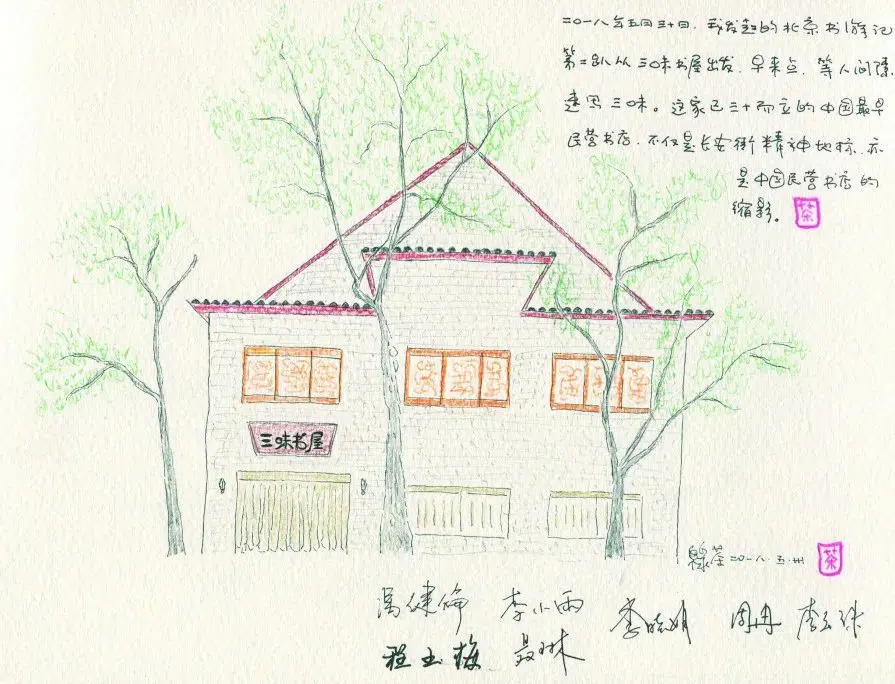 二〇一八年五月三十日，我发起的北京书店游记
第二趴从三味书屋出发，早来点，等人间隙，
速写三味。这家已三十而立的中国最早
民营书店，不仅是长安街精神地标，亦
是中国民营书店的
缩影。
茶
三味书屋
绿茶 二〇一八·五·卅
茶
冯建伦 李小雨 李晓娟 周冉
程玉梅 聂琳